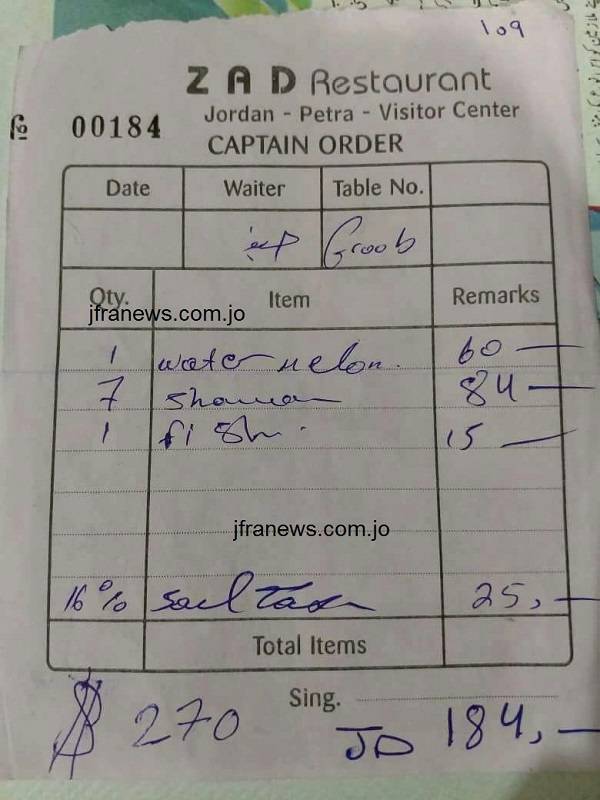 109
ZAD Restaurant
Jordan - Petra - Visitor Center
№ 00184
CAPTAIN ORDER
Date Waiter Table No.
Groob
Qty. Item Remarks
jfranews.com.jo
1 water melon. 60
7 84
1 fish. 15
jfranews.com.jo
16% 25,
Total Items
Sing.
$ 270 JD 184,